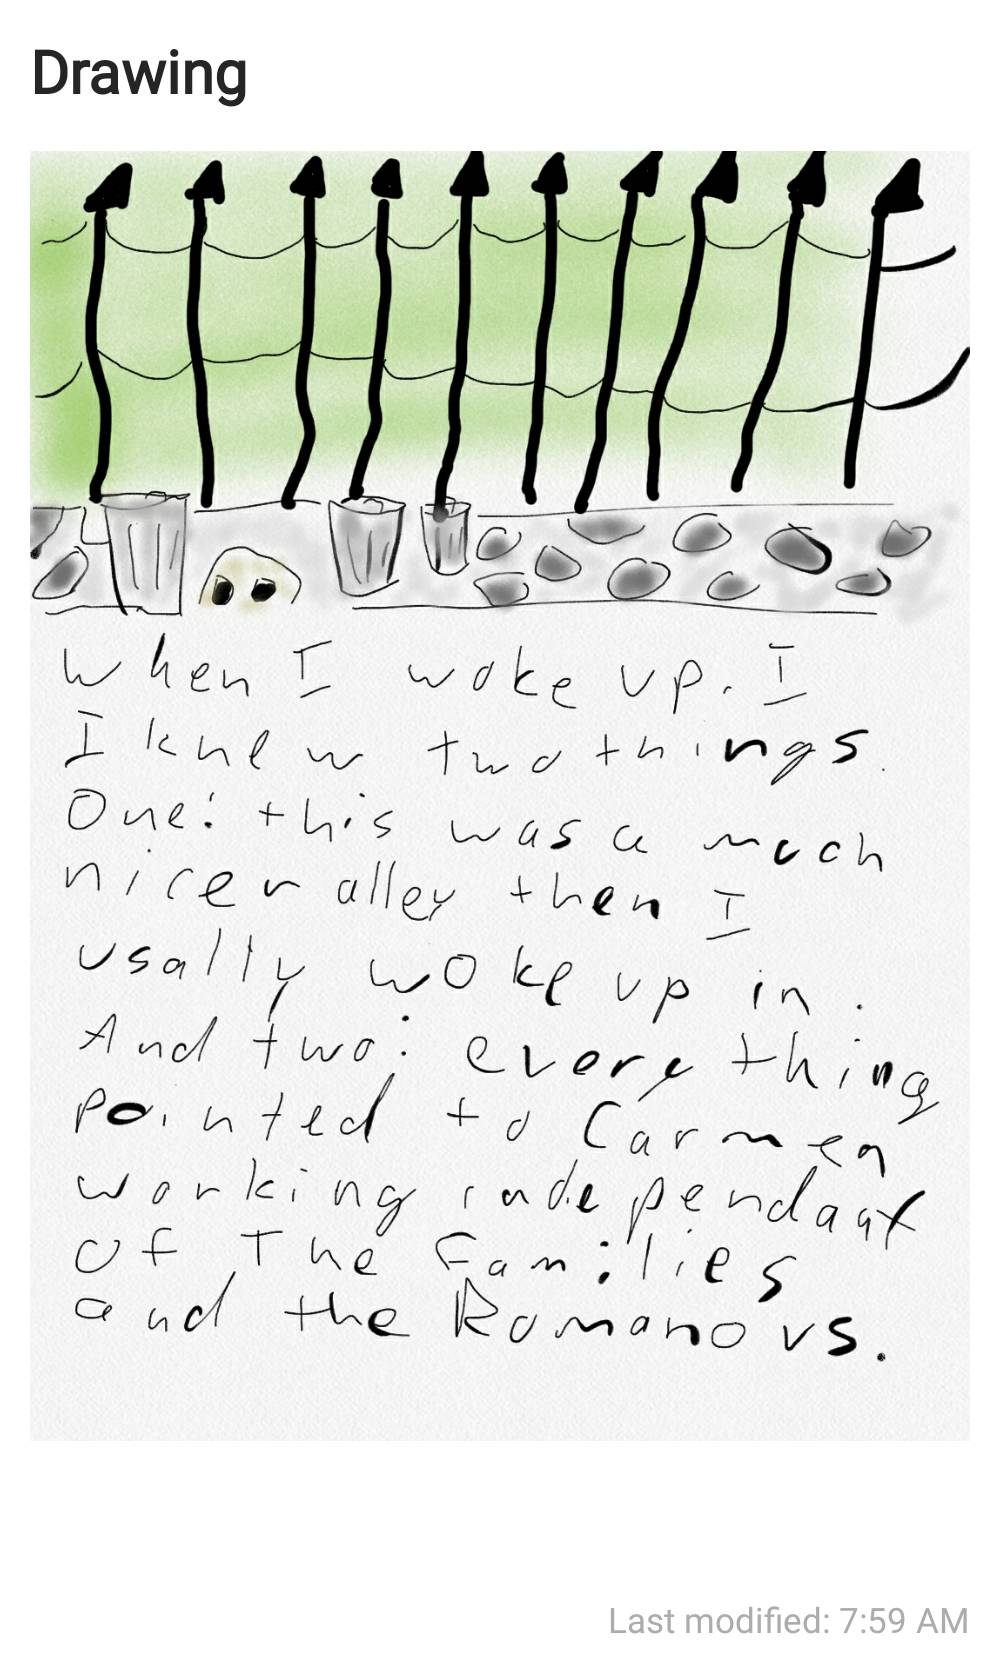 Drawing
When I woke up. I
I knew two things.
One: this was a much
nicer alley then I
usally woke up in.
And two: every thing
pointed to Carmen
working independant
of The Families
and the Romanovs.
Last modified: 7:59 AM